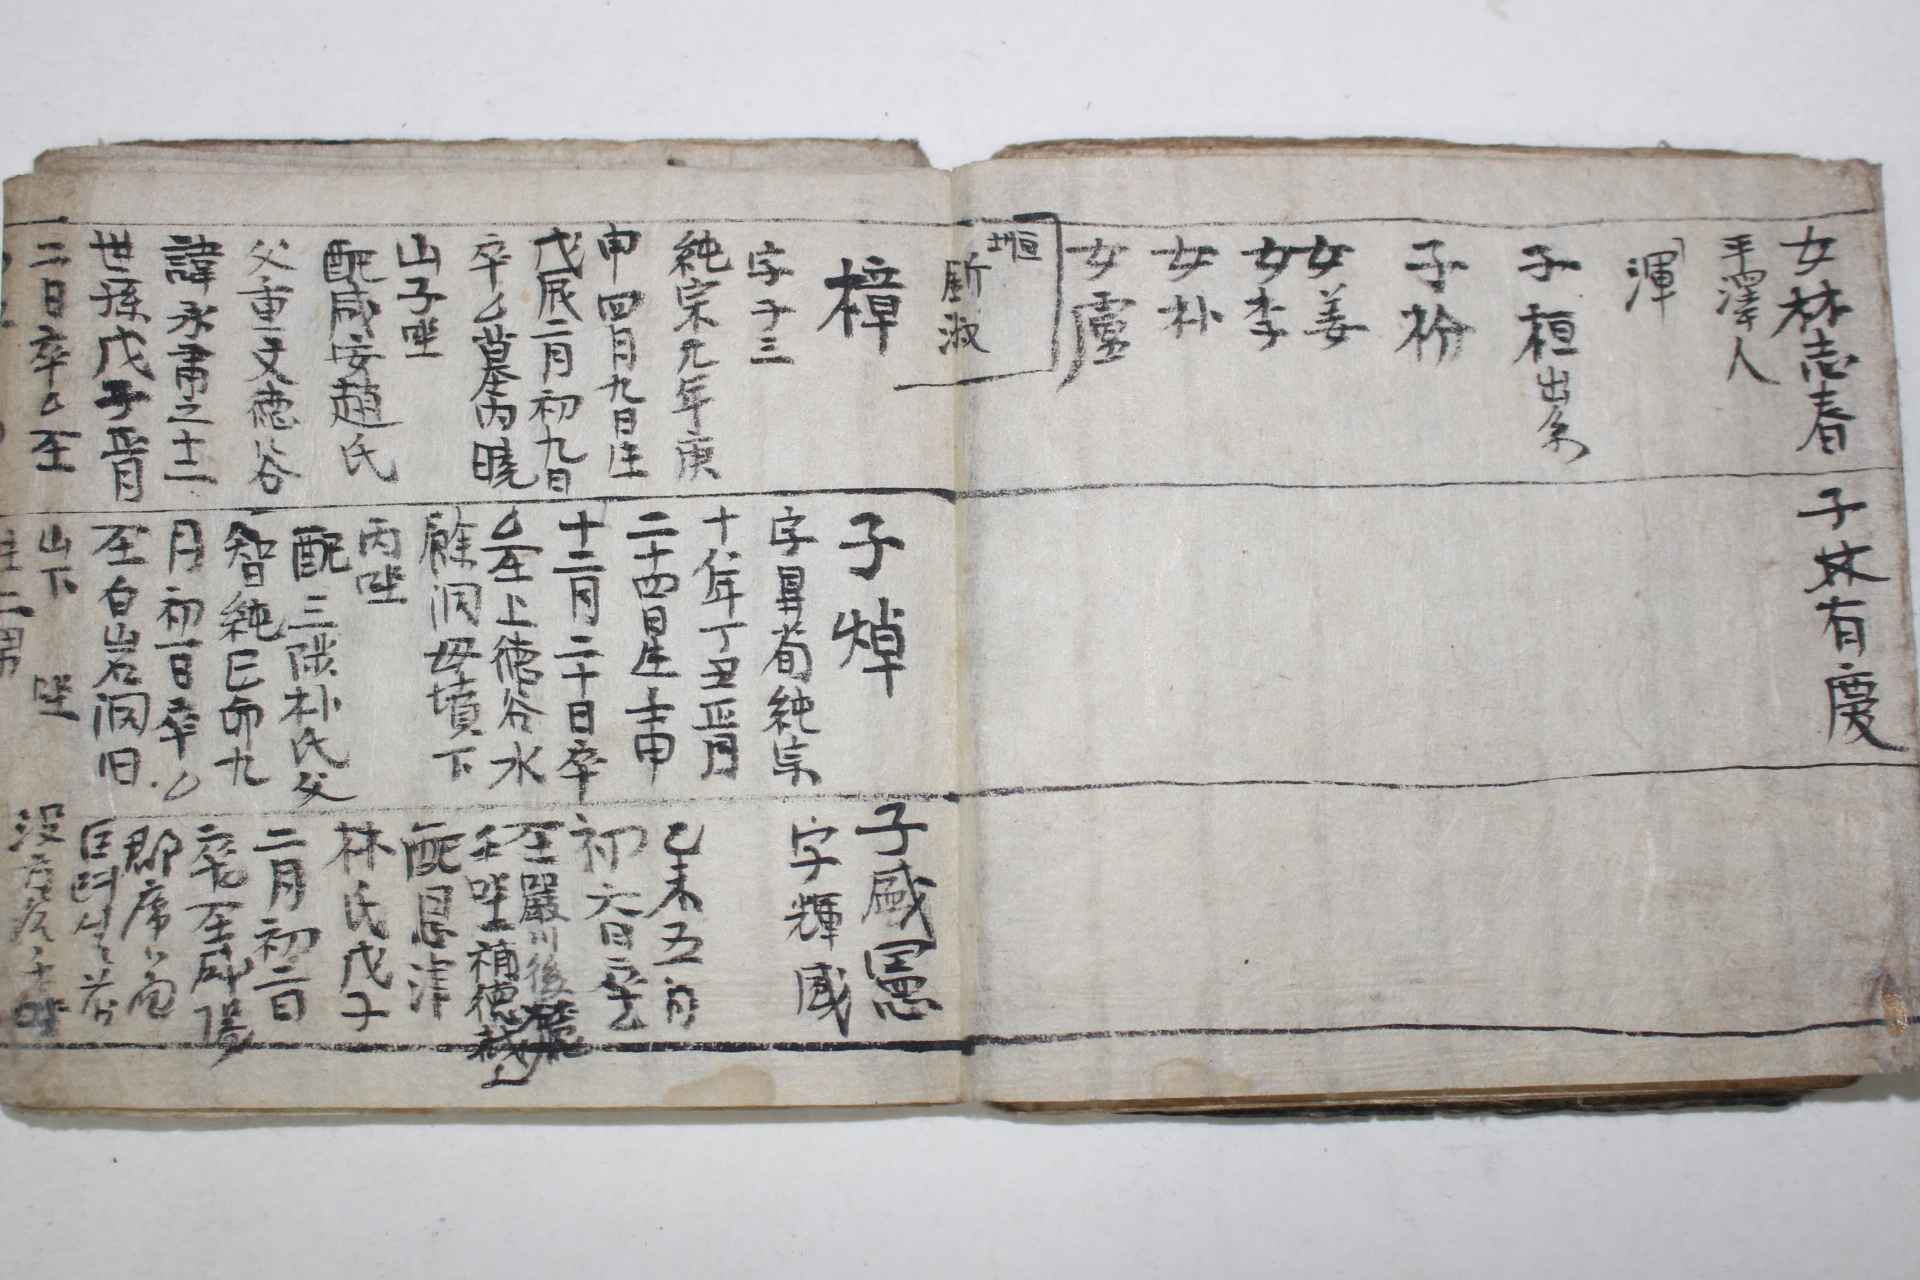 女林志春
平澤人
子林有慶
渾
子桓出系
子枌
女姜
女李
女朴
女盧
垣
斯淑
樟
字子三
純宗元年庚
申四月九日生
戊辰二月初九日
卒乙墓丙曉
山子坐
配咸安趙氏
父重文德谷
諱永肅之十二
世孫戊子正月
二日卒乙至
子焯
字昇荀純宗
十代年丁丑正月
二十四日生壬申
十二月二十日卒
乙至上德谷水
餘洞母墳下
丙坐
配三陟朴氏父
智純己卯九
月初一日卒乙
至白岩洞旧
山下 坐
生二男
子咸憲
字輝咸
乙未五月
初六日卒乙
至嚴川後
壬坐補德
配恩津
林氏戊子
二月初二日
卒乙至咸陽
郡席